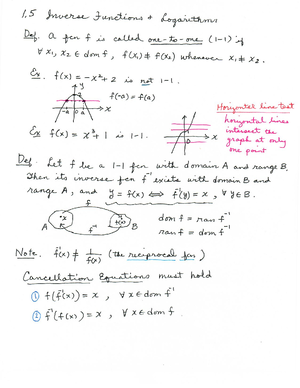 1.5 Inverse Functions & Logarithms
Def. A fcn f is called one-to-one (1-1) if
∀ x₁, x₂ ∈ dom f, f(x₁) ≠ f(x₂) whenever x₁ ≠ x₂.
Ex. f(x) = -x²+2 is not 1-1.
y
f(-a) = f(a)
x
-a a
Horizontal line test
horizontal lines
intersect the
graph at only
one point
Ex f(x) = x³+1 is 1-1.
x
Def. Let f be a 1-1 fcn with domain A and range B.
Then its inverse fcn f⁻¹ exists with domain B and
range A, and y = f(x) ⟺ f⁻¹(y) = x, ∀ y ∈ B.
f
A x f(x) B
f⁻¹
dom f = ran f⁻¹
ran f = dom f⁻¹
Note. f⁻¹(x) ≠ 1/f(x) (the reciprocal fcn)
Cancellation Equations must hold
① f(f⁻¹(x)) = x, ∀ x ∈ dom f⁻¹
② f⁻¹(f(x)) = x, ∀ x ∈ dom f.